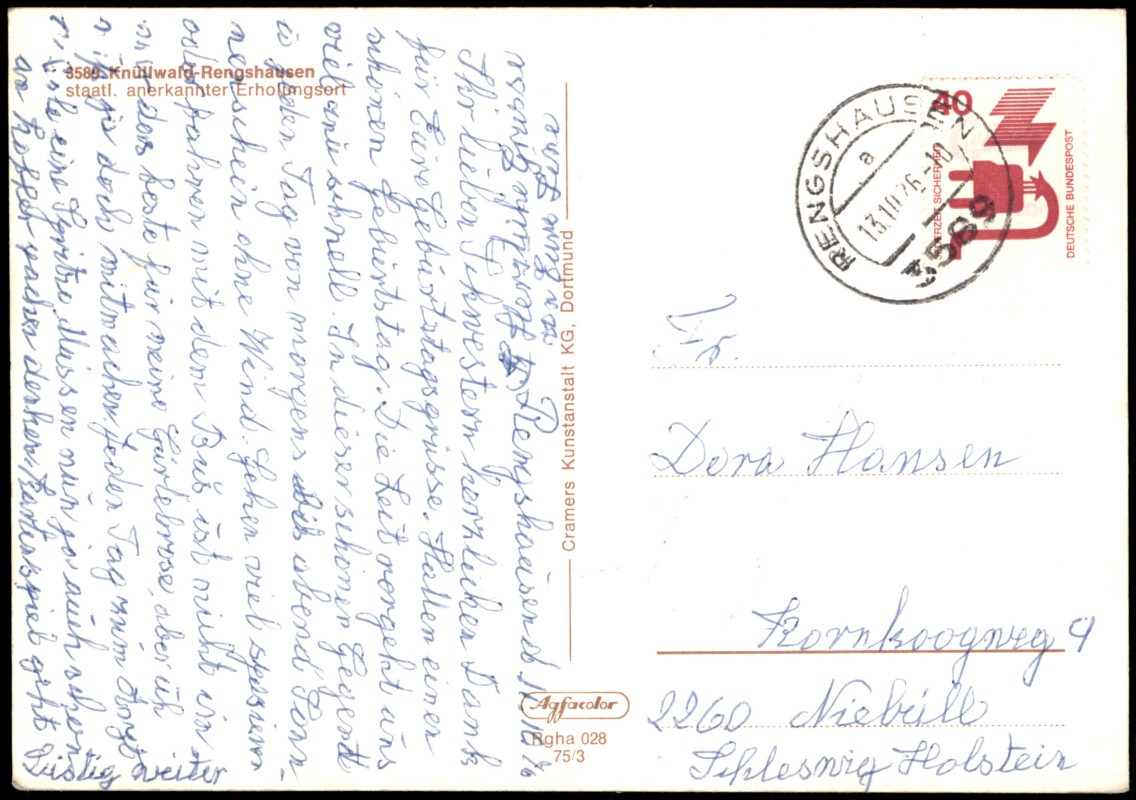 3589 Knüllwald-Rengshausen
staatl. anerkannter Erholungsort
Rengshausen d.
Ihr lieben Schwestern herzlichen Dank
für Eure Gebürtagsgrüsse. Hatten einen
schönen Gebürtstag. Die Zeit vergeht uns
viel zu schnell. In dieser schönen Gegend
jeden Tag von morgens bis abend Sonn-
nenschein ohne Wind. Gehen viel spazieren
oder fahren mit dem Bus ist nicht
das beste für meine aber ich
doch mitmachen. Jeden Tag zum Arzt
eine Spritze. Müssen nun ja auch schon
denken. Kartenspiel geht
lustig weiter
Cramers Kunstanstalt KG, Dortmund
Agfacolor
Rgha 028
75/3
RENGSHAUSEN
a
13.10.76
3589
40
JEDERZEIT SICHERHEIT
DEUTSCHE BUNDESPOST
Fr.
Dora Hansen
Kornkoogweg 9
2260 Niebüll
Schleswig Holstein